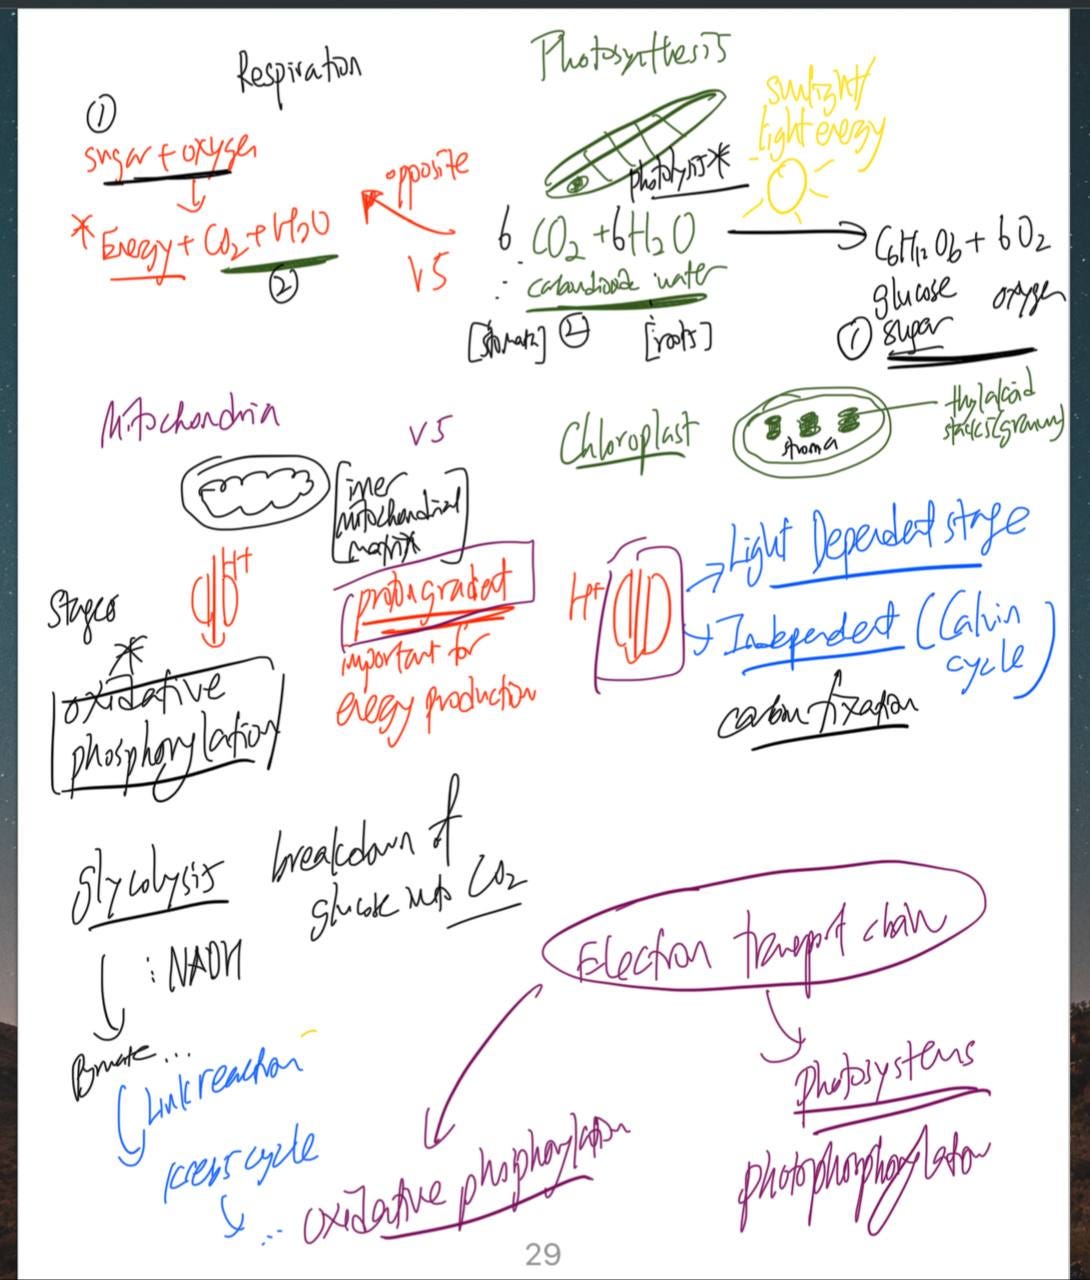 Respiration
Photosynthesis
①
sugar + oxygen
* Energy + CO2 + H2O
②
opposite
VS
sunlight/
light energy
photolysis*
6 CO2 + 6H2O
C6H12O6 + 6O2
: carbondioxide water
glucose oxygen
[stomata] ② [roots]
① sugar
Mitochondria
VS
Chloroplast
stroma
thylakoid
stacks (granum)
[inner
mitochondrial
matrix]
H+
Stages
*
[oxidative
phosphorylation]
proton gradient
important for
energy production
H+
Light Dependent stage
Independent (Calvin
cycle)
carbon fixation
glycolysis
breakdown of
glucose into CO2
: NADH
Link reaction
krebs cycle
...
Electron transport chain
oxidative phosphorylation
Photosystems
photophosphorylation
29